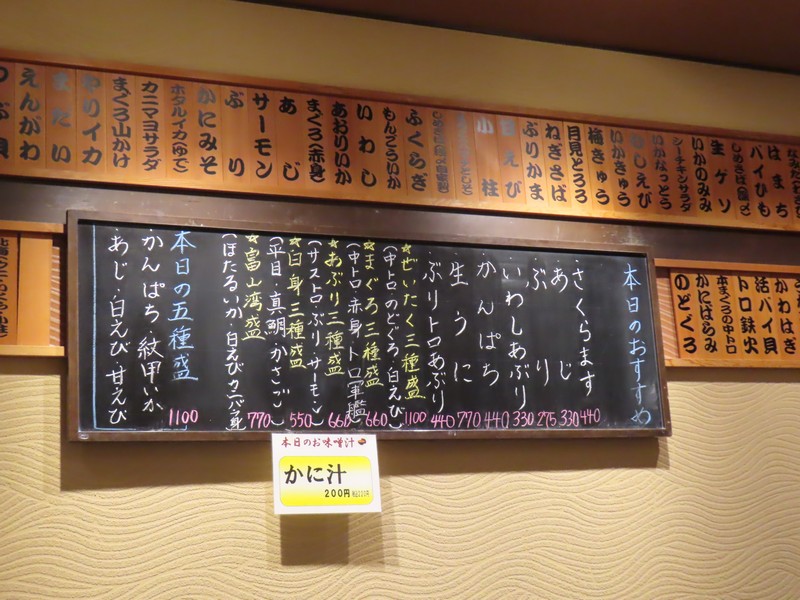 なみだ
はまち
バイひも
しめさば
生ゲソ
いかのみみ
シーチキンサラダ
いかなっとう
むしえび
いかきゅう
梅きゅう
月見とろろ
ねぎさば
ぶりかま
白えび
小柱
ふくらぎ
もんごういか
いわし
あおりいか
まぐろ(赤身)
あじ
サーモン
ぶり
かにみそ
ホタルイカ(ゆで)
カニマヨサラダ
まぐろ山かけ
ヤリイカ
まだい
えんがわ
つぶ貝
かわはぎ
活バイ貝
トロ鉄火
本まぐろの中トロ
かにばらみ
のどぐろ
本日のおすすめ
さくらます 440
あじ 330
ぶり 275
いわしあぶり 330
かんぱち 440
生うに 770
ぶりトロあぶり 440
★ぜいたく三種盛 1100
(中トロ・のどぐろ・白えび)
★まぐろ三種盛 660
(中トロ・赤身・トロ軍艦)
★あぶり三種盛 660
(サストロ・ぶり・サーモン)
★白身三種盛 550
(平目・真鯛・かさご)
★富山湾盛 770
(ほたるいか・白えび・カニバラ身)
本日の五種盛 1100
かんぱち・紋甲いか
あじ・白えび・甘えび
本日のお味噌汁
かに汁
200円 税込220円